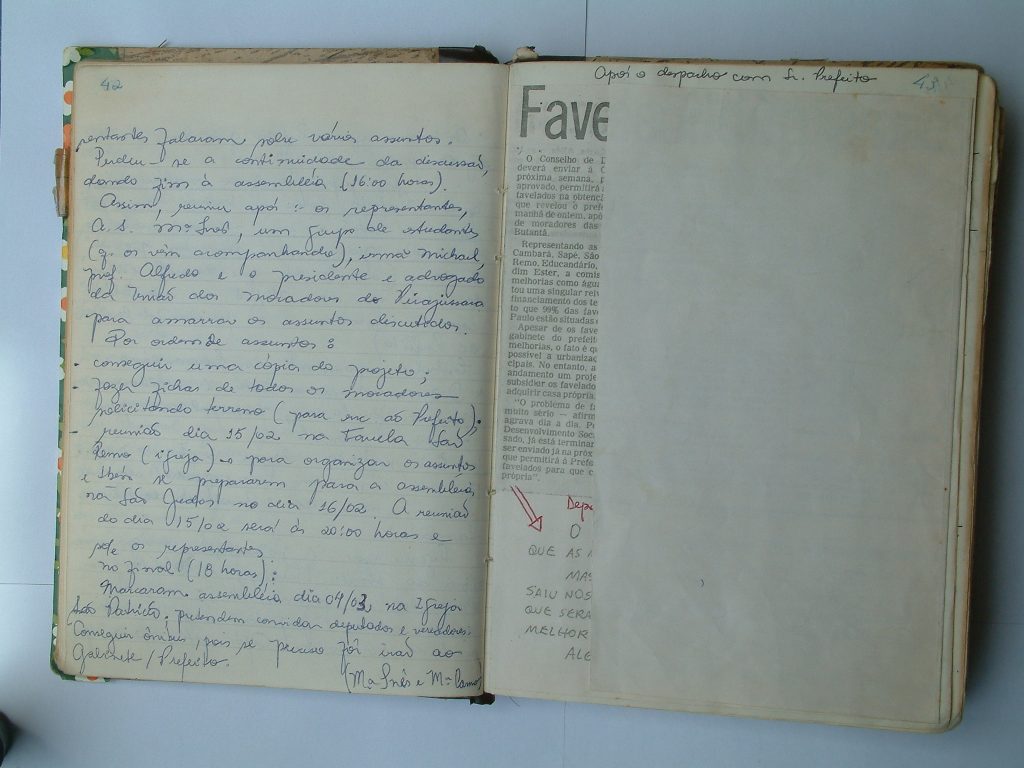 42
sentantes falaram sobre vários assuntos.
Perdeu-se a continuidade da discussão,
dando fim à assembléia (16:00 horas).
Assim, reuniu após: os representantes,
A.S. Mª Inês, um grupo de estudantes
(q. os vêm acompanhando), irmã Michael,
prof. Alfredo e o presidente e advogado
da União dos moradores do Pirajussara
para amarrar os assuntos discutidos.
Por ordem de assuntos:
- conseguir uma cópia do projeto;
- fazer fichas de todos os moradores
solicitando terreno (para enc. ao Prefeito);
- reunião dia 15/02 na Favela São
Remo (igreja) → para organizar os assuntos
e tbém se prepararem para a assembléia
na São Judas no dia 16/02. A reunião
do dia 15/02 será às 20:00 horas e
só os representantes
no final (18 horas):
Marcaram assembléia dia 04/03, na Igreja
São Patrício, pretendem convidar deputados e vereadores.
Conseguir ônibus, pois se preciso for irão ao
Gabinete/Prefeito.
(Mª Inês e Mª
Após o despacho com Sr. Prefeito
43
Fave
O Conselho de D
deverá enviar à C
próxima semana, p
aprovado, permitirá a
favelados na obtenç
que revelou o prefe
manhã de ontem, apó
de moradores das
Butantã.
Representando as
Cambará, Sapé, São
Remo, Educandário,
dim Ester, a comis
melhorias como água
tou uma singular reiv
financiamento dos te
to que 99% das fave
Paulo estão situadas e
Apesar de os fave
gabinete do prefeit
melhorias, o fato é qu
possível a urbanizaç
cipais. No entanto, a
andamento um proje
subsidiar os favelado
adquirir casa própria.
"O problema de fa
muito sério — afirm
agrava dia a dia. P
Desenvolvimento Soc
sado, já está terminan
ser enviado já na próx
que permitirá à Prefe
favelados para que c
própria".
Depo
O
QUE AS
MAS
SAIU NOS
QUE SERA
MELHOR
ALE